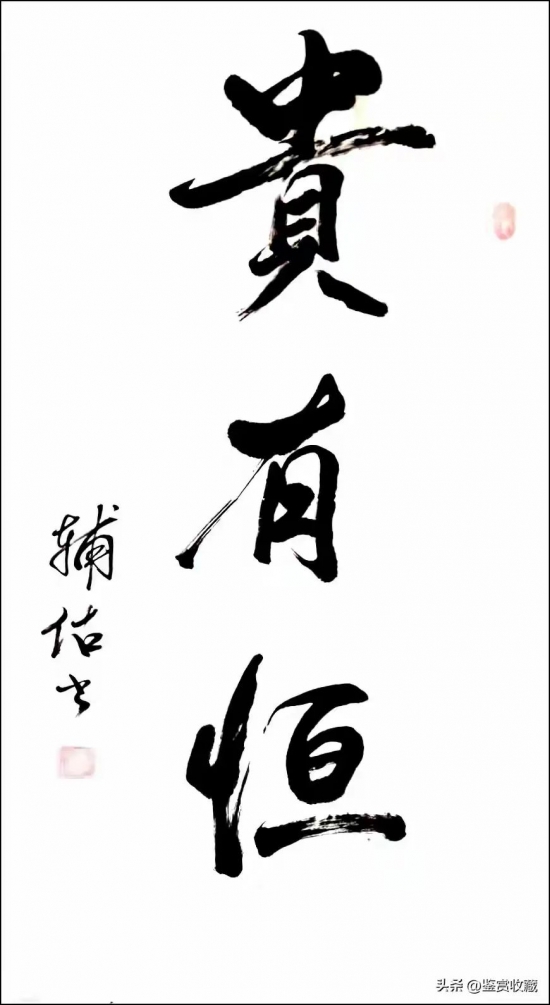 貴有恒
輔佑书
头条 @鉴赏收藏